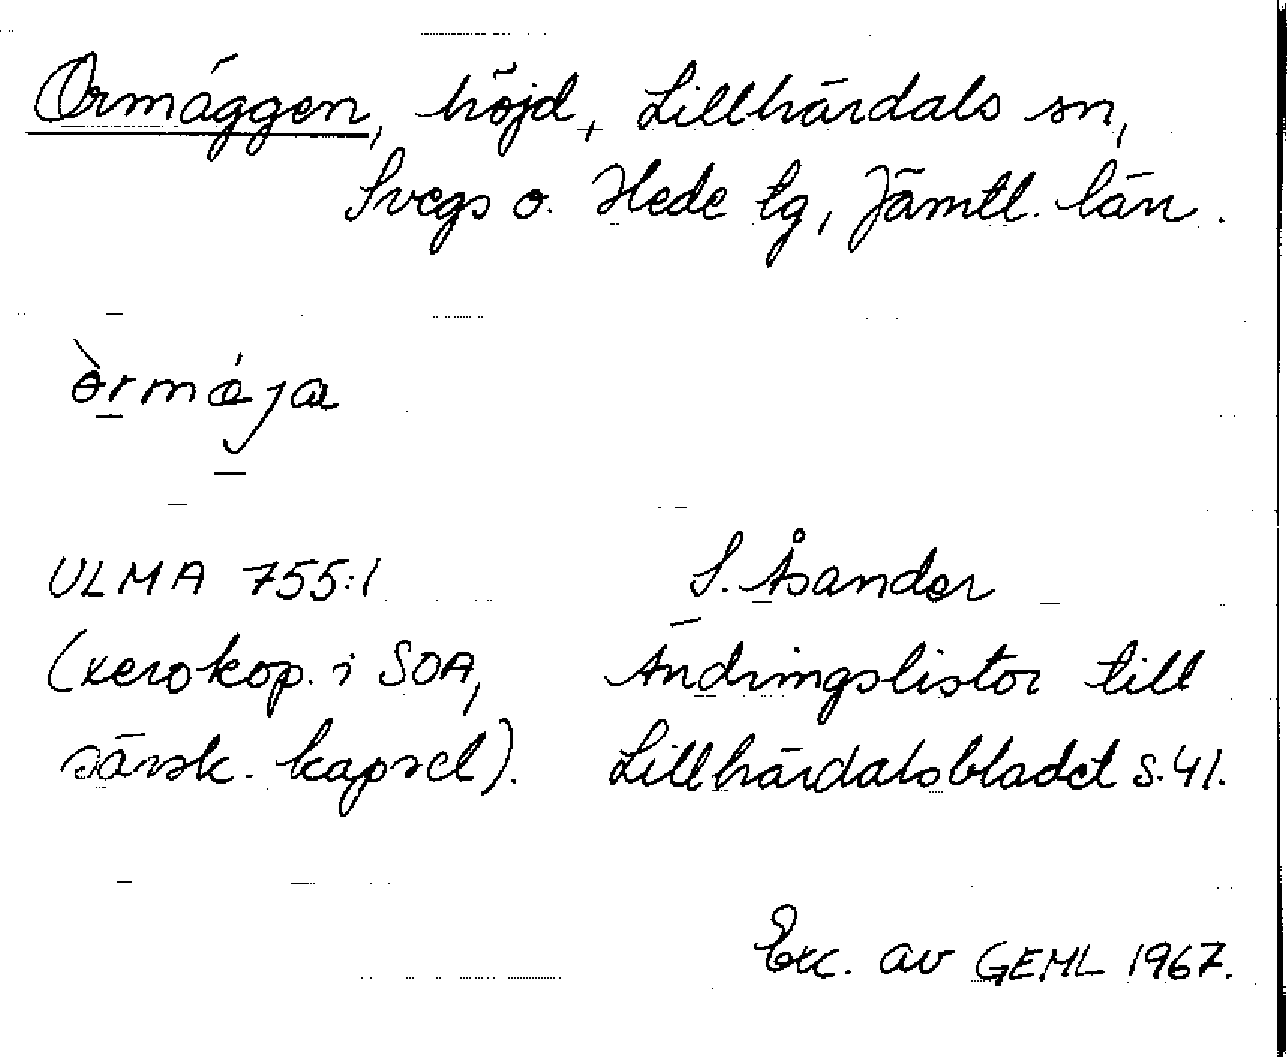 Ormäggen, höjd, Lillhärdals sn,
Svegs o. Hede tg, Jämtl. län.
ULMA 755:1 S. Åsander
(xerokop. i SOA, Ändringslistor till
särsk. kapsel). Lillhärdalsbladet s. 41.
Exc. av GEML 1967.